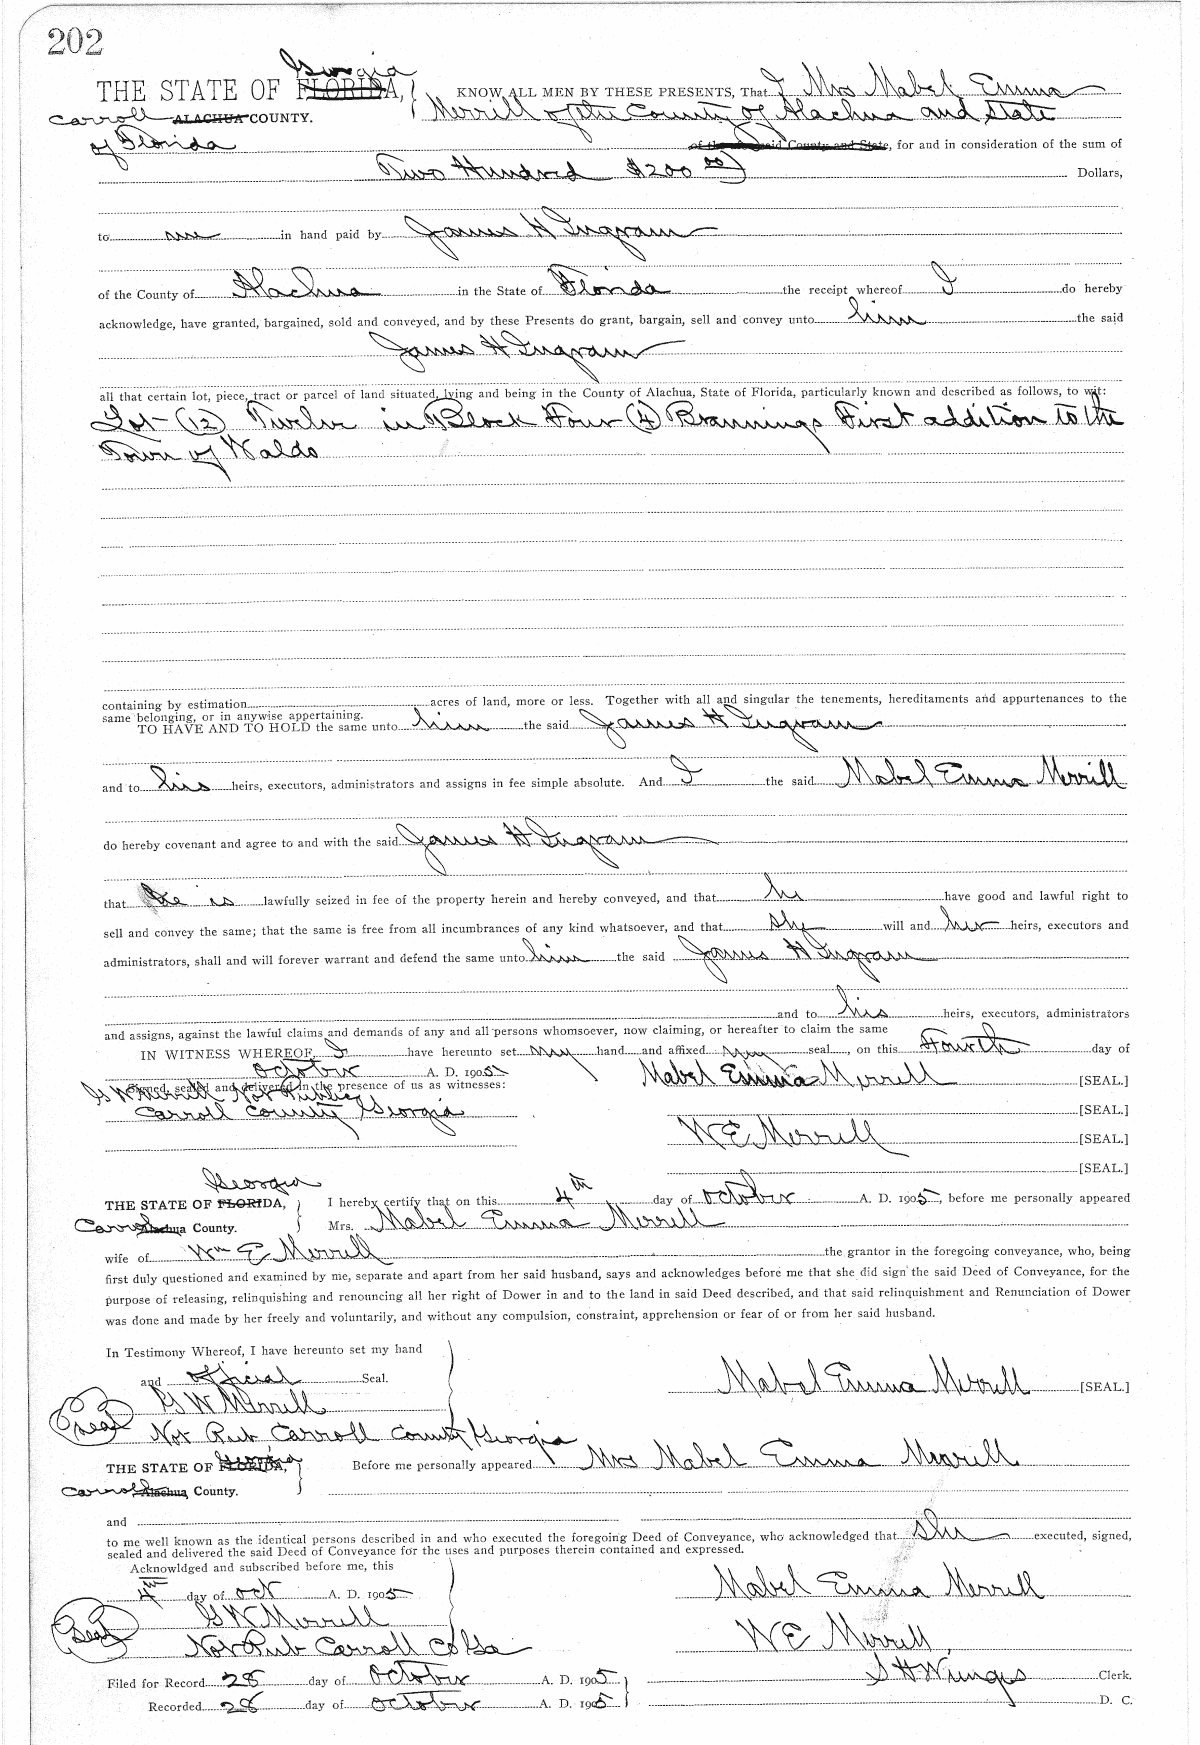 202
Georgia
THE STATE OF FLORIDA, KNOW ALL MEN BY THESE PRESENTS, That I Mrs Mabel Emma
Carroll ALACHUA COUNTY. Merrill of the County of Alachua and State
of Florida of the said County and State, for and in consideration of the sum of
Two Hundred $200 00 Dollars,
to me in hand paid by James H Ingram
of the County of Alachua in the State of Florida the receipt whereof I do hereby
acknowledge, have granted, bargained, sold and conveyed, and by these Presents do grant, bargain, sell and convey unto him the said
James H Ingram
all that certain lot, piece, tract or parcel of land situated, lying and being in the County of Alachua, State of Florida, particularly known and described as follows, to wit:
Lot (12) Twelve in Block Four (4) Brannings First addition to the
Town of Waldo
containing by estimation acres of land, more or less. Together with all and singular the tenements, hereditaments and appurtenances to the
same belonging, or in anywise appertaining.
TO HAVE AND TO HOLD the same unto him the said James H Ingram
and to his heirs, executors, administrators and assigns in fee simple absolute. And I the said Mabel Emma Merrill
do hereby covenant and agree to and with the said James H Ingram
that he is lawfully seized in fee of the property herein and hereby conveyed, and that he have good and lawful right to
sell and convey the same; that the same is free from all incumbrances of any kind whatsoever, and that she will and her heirs, executors and
administrators, shall and will forever warrant and defend the same unto him the said James H Ingram
and to his heirs, executors, administrators
and assigns, against the lawful claims and demands of any and all persons whomsoever, now claiming, or hereafter to claim the same
IN WITNESS WHEREOF, I have hereunto set my hand and affixed my seal, on this Fourth day of
October A. D. 1905 Mabel Emma Merrill [SEAL.]
Signed, sealed and delivered in the presence of us as witnesses:
G W Merrill Not Public
Carroll County Georgia [SEAL.]
W E Merrill [SEAL.]
[SEAL.]
Georgia
THE STATE OF FLORIDA, I hereby certify that on this 4th day of October A. D. 1905, before me personally appeared
Carroll Alachua County. Mrs. Mabel Emma Merrill
wife of Wm E Merrill the grantor in the foregoing conveyance, who, being
first duly questioned and examined by me, separate and apart from her said husband, says and acknowledges before me that she did sign the said Deed of Conveyance, for the
purpose of releasing, relinquishing and renouncing all her right of Dower in and to the land in said Deed described, and that said relinquishment and Renunciation of Dower
was done and made by her freely and voluntarily, and without any compulsion, constraint, apprehension or fear of or from her said husband.
In Testimony Whereof, I have hereunto set my hand
and official Seal. Mabel Emma Merrill [SEAL.]
G W Merrill
Seal Not Pub Carroll County Georgia
THE STATE OF FLORIDA, Georgia Before me personally appeared Mrs Mabel Emma Merrill
Carroll Alachua County.
and
to me well known as the identical persons described in and who executed the foregoing Deed of Conveyance, who acknowledged that she executed, signed,
sealed and delivered the said Deed of Conveyance for the uses and purposes therein contained and expressed.
Acknowldged and subscribed before me, this
4th day of Oct A. D. 1905 Mabel Emma Merrill
Seal G W Merrill W E Merrill
Not Pub Carroll Co Ga
Filed for Record 28 day of October A. D. 1905 S H Wienges Clerk.
Recorded 28 day of October A. D. 1905 D. C.